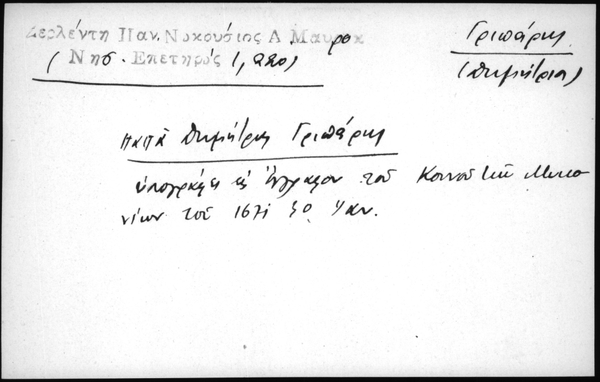 Ζερλέντη Παν. Νικούσιος Α. Μαυροκ
(Νησ. Επετηρίς 1, 220)
Γριπάρης
(Δημήτριος)
παπᾶ Δημήτρης Γριπάρης
ὑπογράφει εἰς ἔγγραφον τοῦ Κοινοῦ τῶν Μυκο
νίων τοῦ 1671 30 Ἰαν.